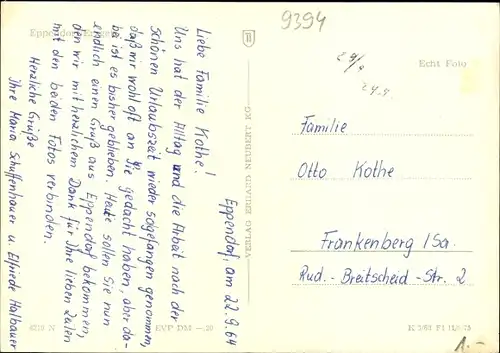 Eppendorf, am 22.9.64
Liebe Familie Kothe!
Uns hat der Alltag und die Arbeit nach der
schönen Urlaubszeit wieder so gefangen genommen,
daß wir wohl oft an Sie gedacht haben, aber da-
bei ist es bisher geblieben. Heute sollen Sie nun
endlich einen Gruß aus Eppendorf bekommen,
den wir mit herzlichem Dank für Ihre lieben Zeilen
mit den beiden Fotos verbinden.
Herzliche Grüße
Ihre Maria Schuffenhauer u. Elfriede Halbauer
VERLAG ERHARD NEUBERT KG
9394
Echt Foto
24.9.
Familie
Otto Kothe
Frankenberg /Sa.
Rud.-Breitscheid-Str. 2
EVP DM -.20
1.-